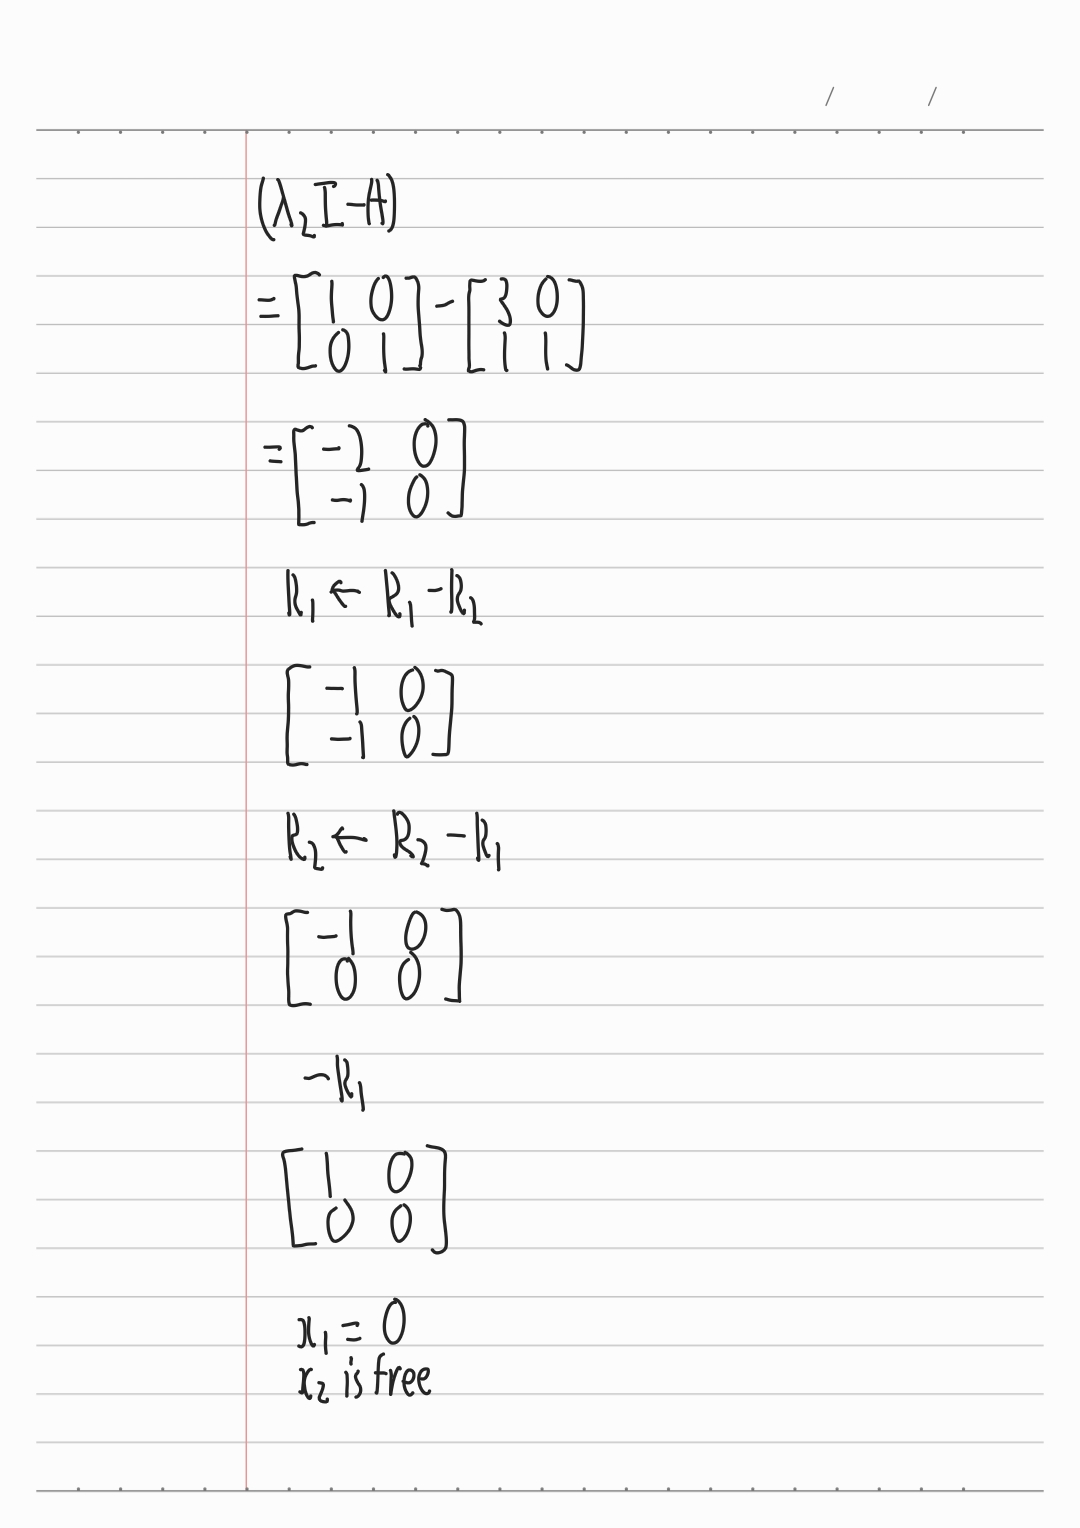 / /
(λ₂I-A)
= [1 0; 0 1] - [3 0; 1 1]
= [-2 0; -1 0]
R₁ ← R₁ - R₂
[-1 0; -1 0]
R₂ ← R₂ - R₁
[-1 0; 0 0]
-R₁
[1 0; 0 0]
x₁ = 0
x₂ is free